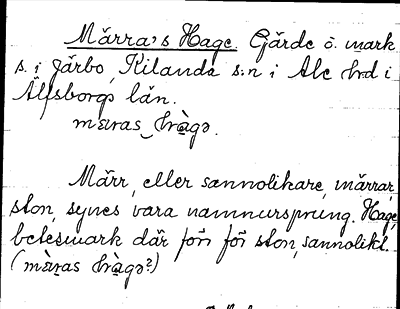 Märra's Hage. Gärde o. mark
s. i Järbo, Kilanda s:n i Ale hrd i
Älfsborgs län.
mæras hàgə.
Märr, eller sannolikare, märrar,
ston, synes vara namnursprung. Hage,
betesmark där förr för ston, sannolikt.
(mæ̀ras hàgə?)